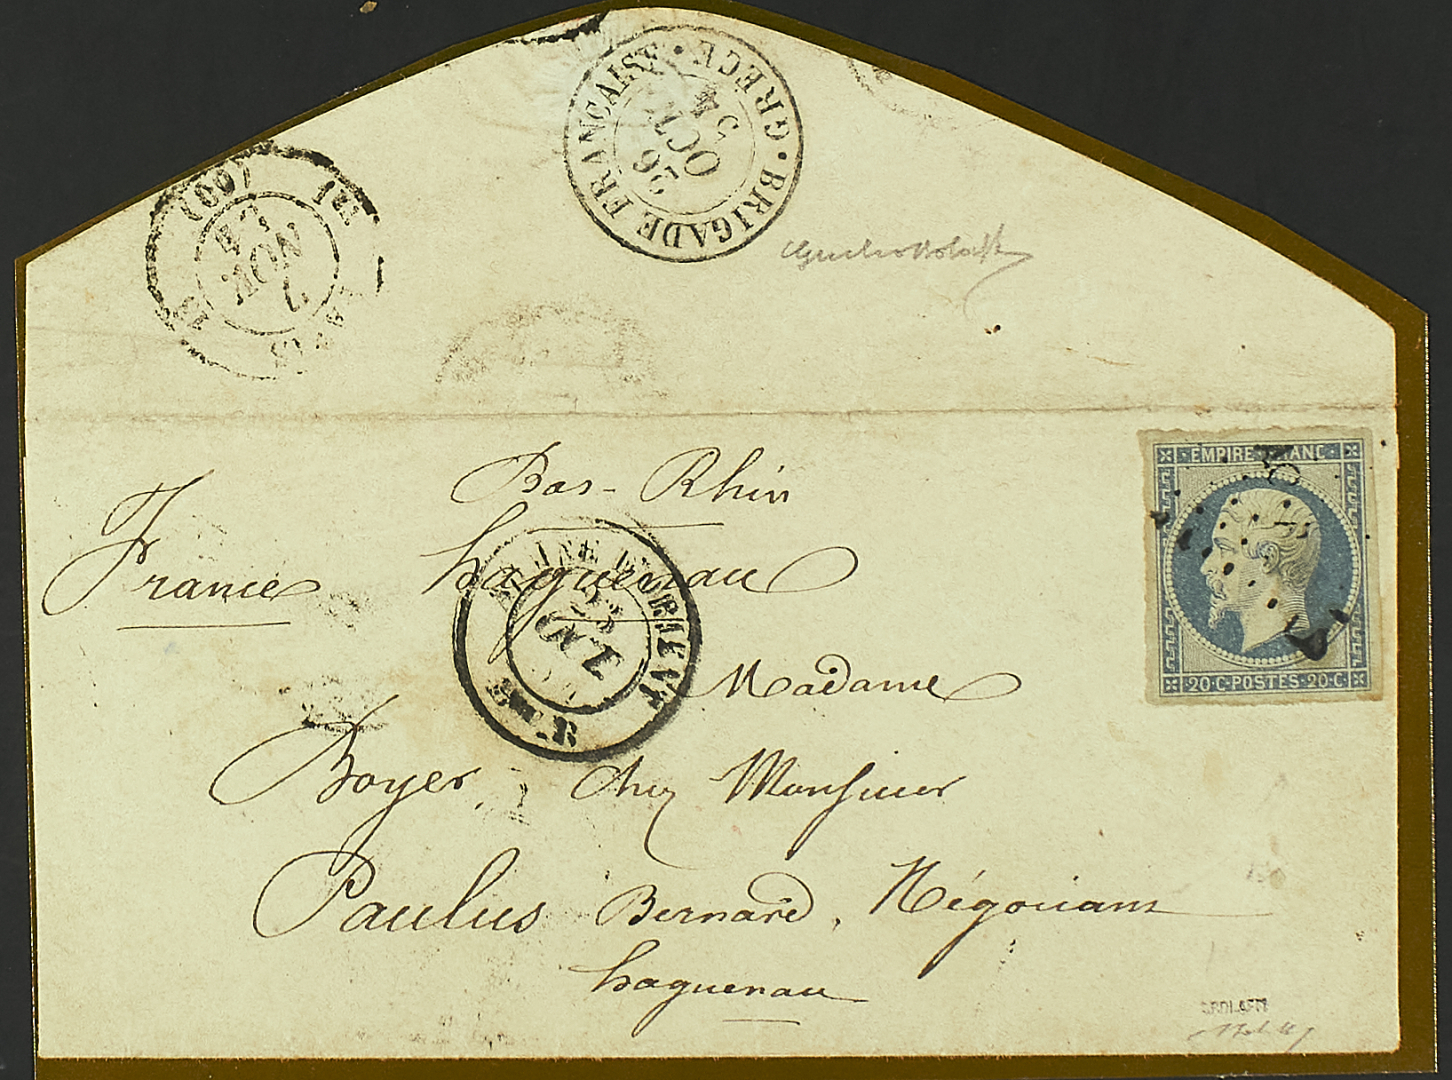 BRIGADE FRANÇAISE · GRÈCE ·
26
OCT.
54
(60)
7
NOV.
54
PARIS
Bas-Rhin
France
haguenau
D'ORIENT
Madame
Boyer chez Monsieur
Paulus Bernard, Négociant
haguenau
EMPIRE FRANC
20·C·POSTES·20·C